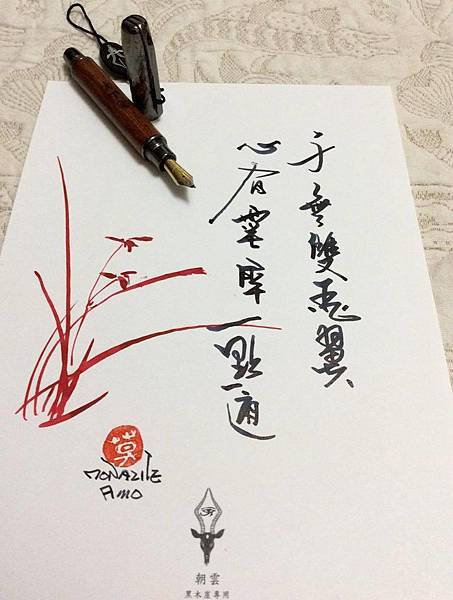 身無雙飛翼
心有靈犀一點通
莫
AMO
朝雲
黑木崖專用